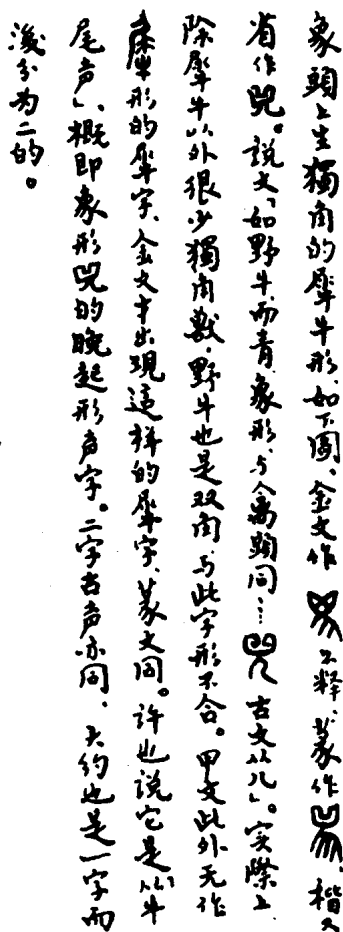 象頭上生獨角的犀牛形，如下圖，金文作 不釋，篆作 ，楷又
省作兕。說文「如野牛而青，象形，与禽离頭同…… 古文从儿」。实際上
除犀牛以外很少獨角獸，野牛也是双角，与此字形不合。甲文此外无作
犀形的犀字，金文才出現這样的犀字，篆文同。許也說它是「从牛
尾声」，概即象形兕的晚起形声字。二字古声亦同，大約也是一字而
後分为二的。